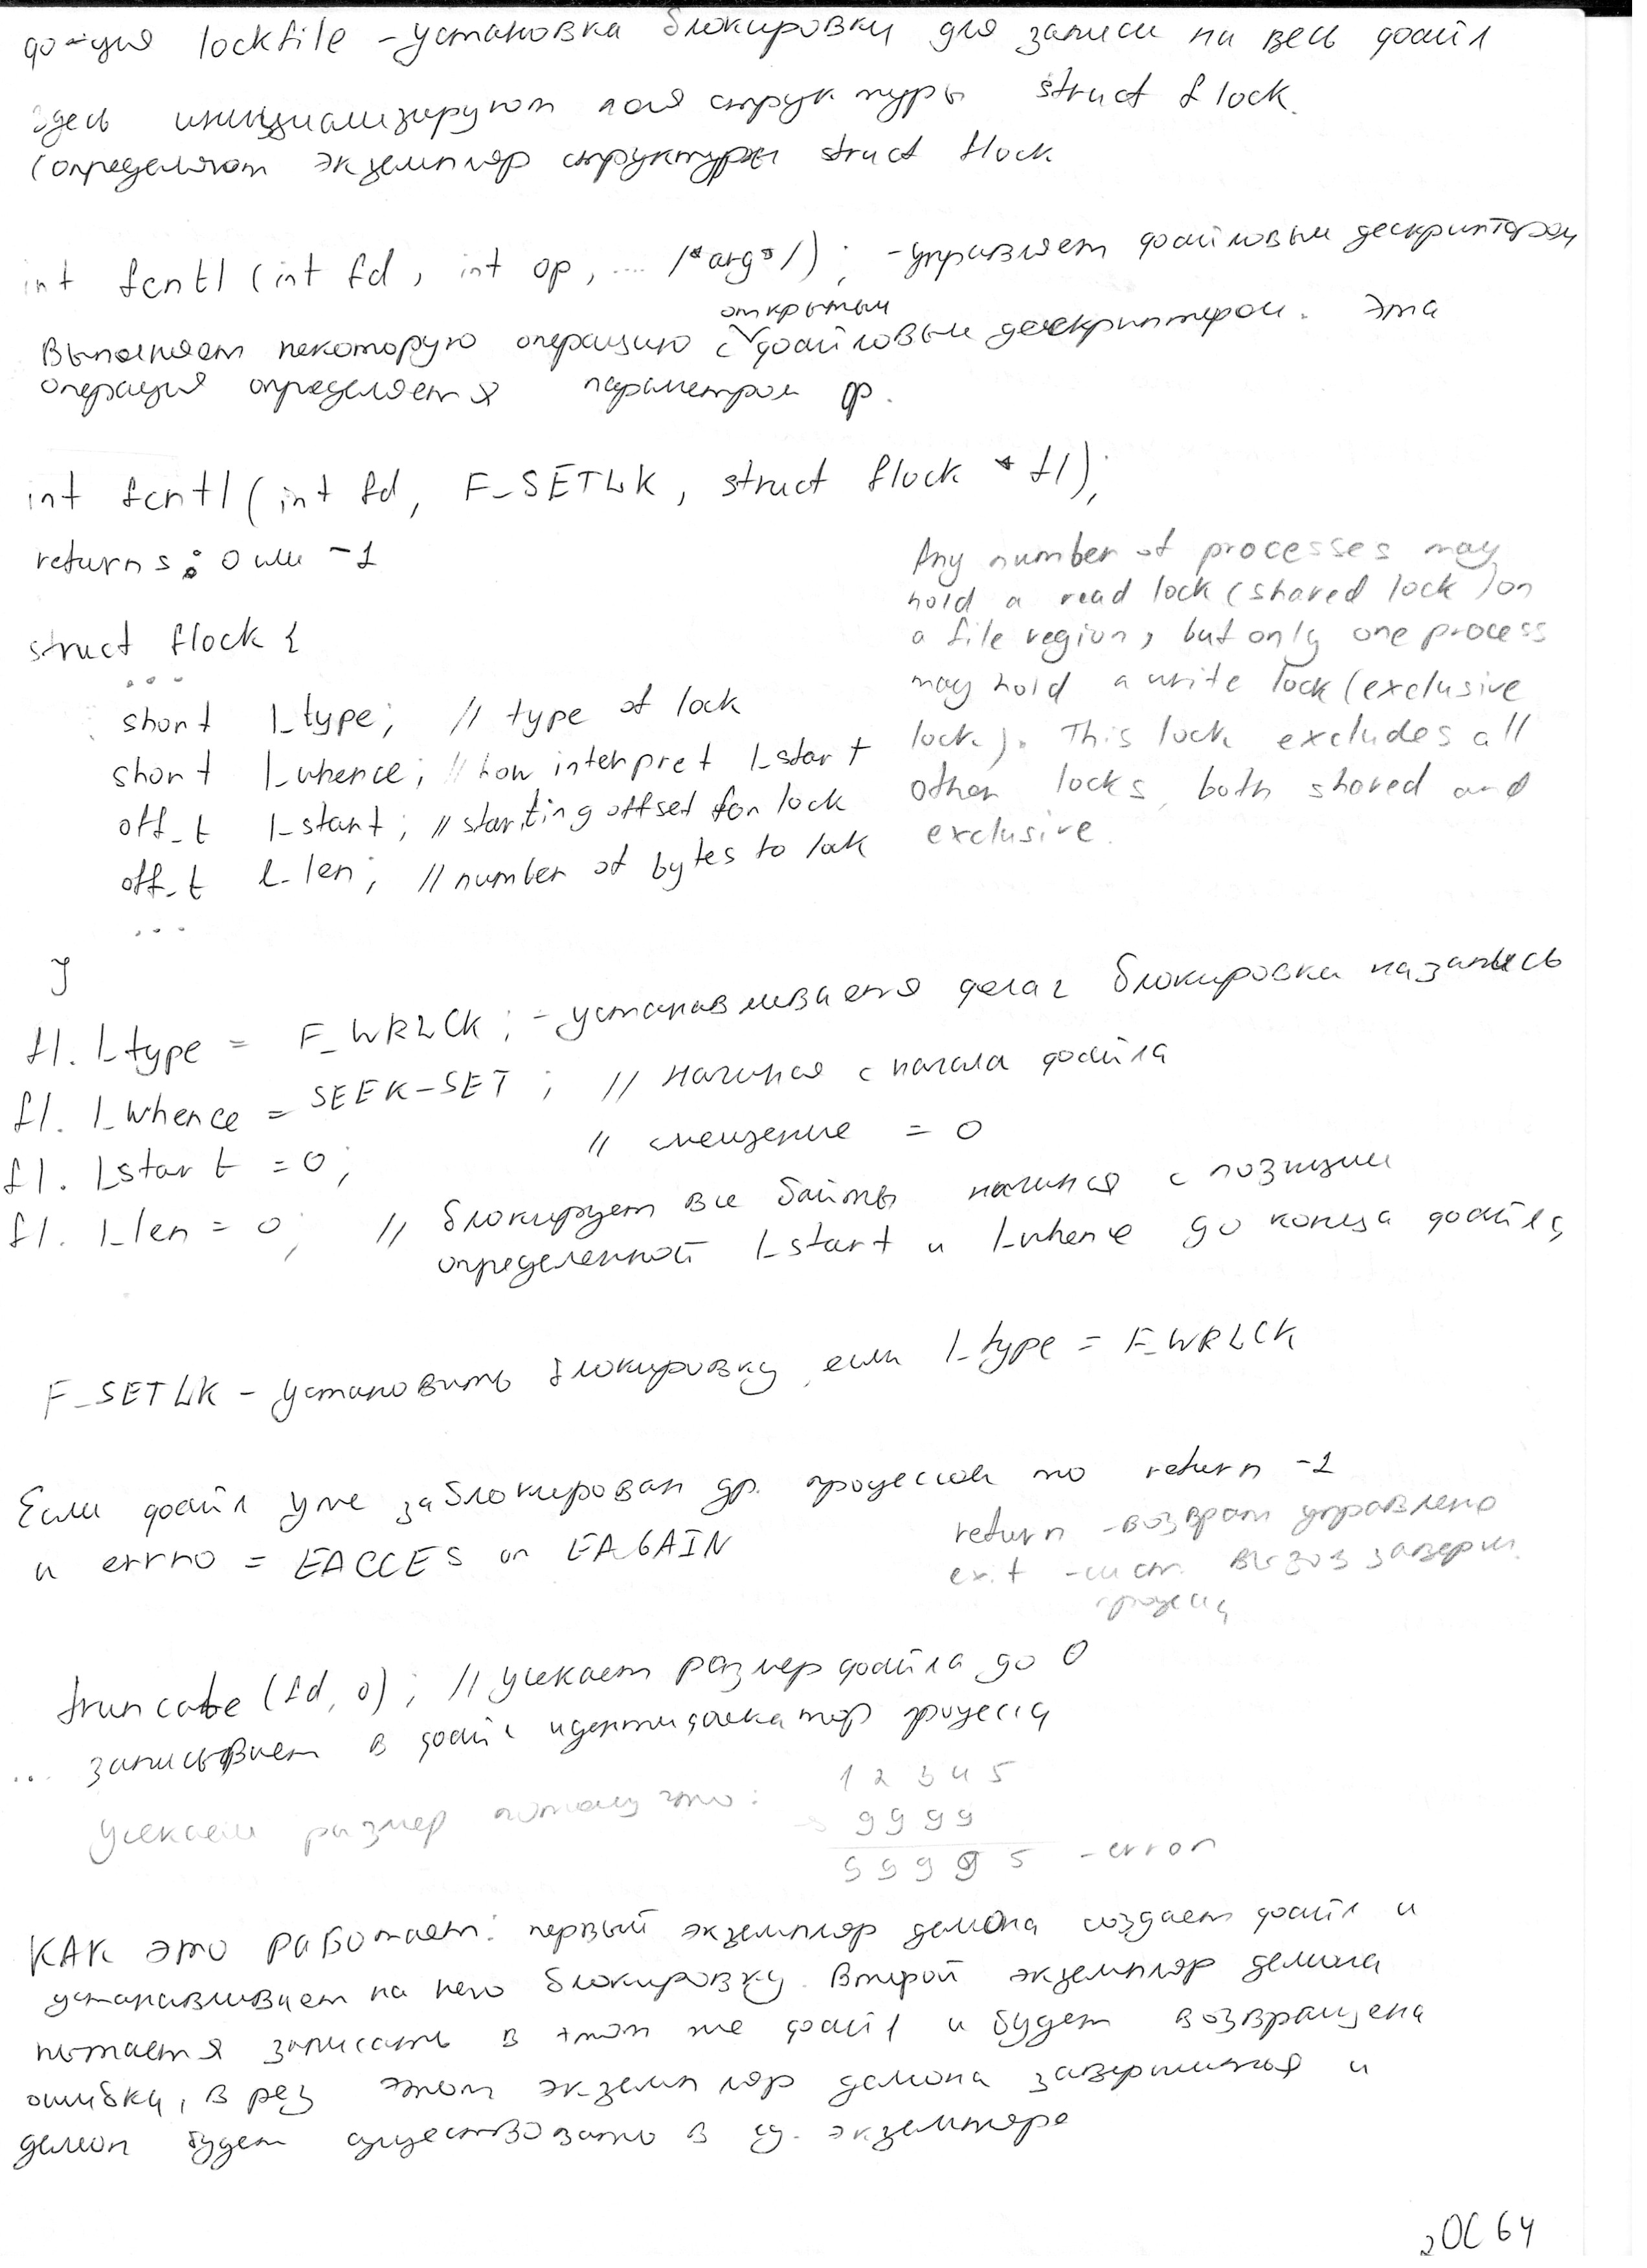 ф-ция lockfile - установка блокировки для записи на весь файл
здесь инициализируют поля структуры struct flock.
(определяют экземпляр структуры struct flock
int fcntl (int fd, int op, .... /*arg*/); - управляет файловым дескриптором
открытым
Выполняет некоторую операцию с файловым дескриптером. Эта
операция определяется параметром op.
int fcntl (int fd, F_SETLK, struct flock * fl);
returns: 0 или -1
struct flock {
...
short l_type; // type of lock
short l_whence; // how interpret l_start
off_t l_start; // starting offset for lock
off_t l_len; // number of bytes to lock
...
}
Any number of processes may
hold a read lock (shared lock) on
a file region, but only one process
may hold a write lock (exclusive
lock). This lock excludes all
other locks, both shared and
exclusive.
fl. l_type = F_WRLCK; - устанавливается флаг блокировки на запись
fl. l_whence = SEEK-SET; // начиная с начала файла
fl. l_start = 0; // смещение = 0
fl. l_len = 0; // блокирует все байты начиная с позиции
определенной l_start и l_whence до конца файла
F_SETLK - установить блокировку, если l_type = F_WRLCK
Если файл уже заблокирован др. процессом то return -1
и errno = EACCES or EAGAIN
return - возврат управлено
exit - сист. вызов заверш.
процесса
truncate (fd, 0); // усекает размер файла до 0
... записывает в файл идентификатор процесса
Усекаем размер потому что:
1 2 3 4 5
9 9 9 9
9 9 9 9 5 - error
КАК это работает: первый экземпляр демона создает файл и
устанавливает на него блокировку. Второй экземпляр демона
пытается записать в этот же файл и будет возвращена
ошибка, в рез этот экземпляр демона завершится и
демон будет существовать в ед. экземпляре
2ОС 64